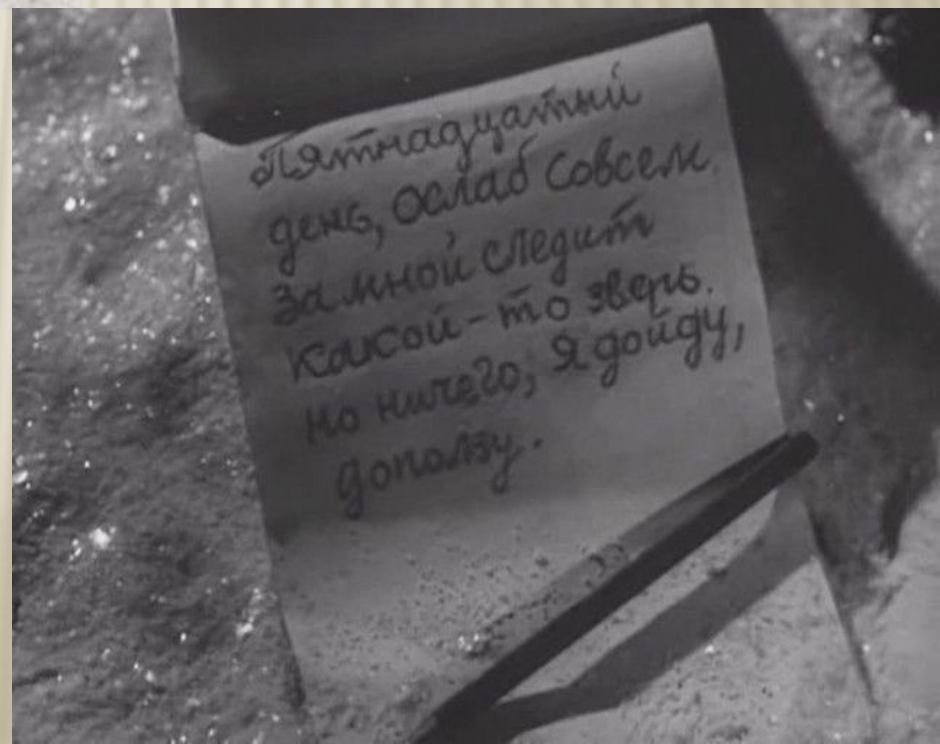 Пятнадцатый
день, ослаб совсем.
За мной следит
какой-то зверь.
но ничего, я дойду,
доползу.